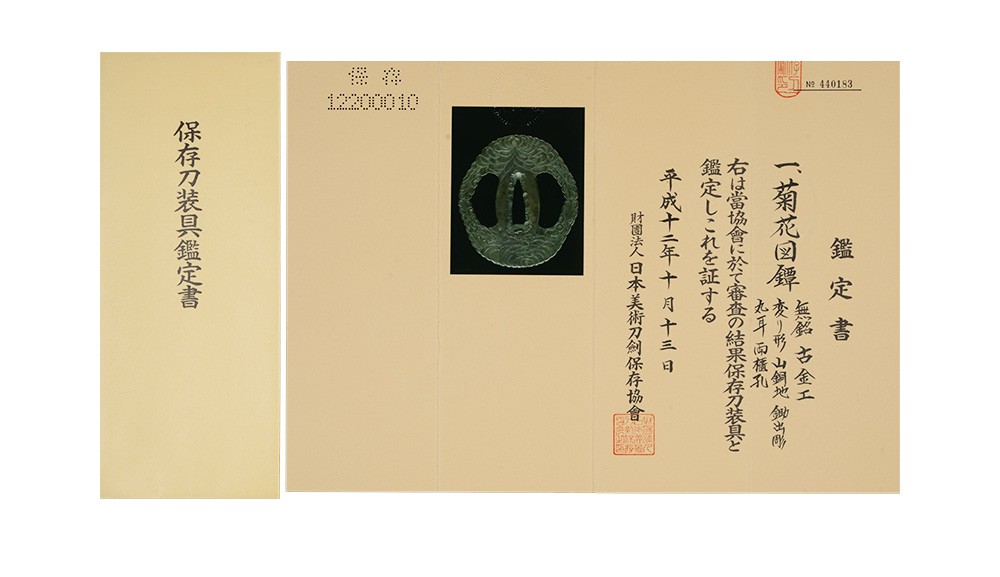 保存刀装具鑑定書
保存
12200010
№ 440183
鑑定書
一、菊花図鐔
無銘 古金工
変り形 山銅地 鋤出彫
丸耳 両櫃孔
右は當協會に於て審査の結果保存刀装具と
鑑定しこれを証する
平成十二年十月十三日
財團法人日本美術刀劍保存協會